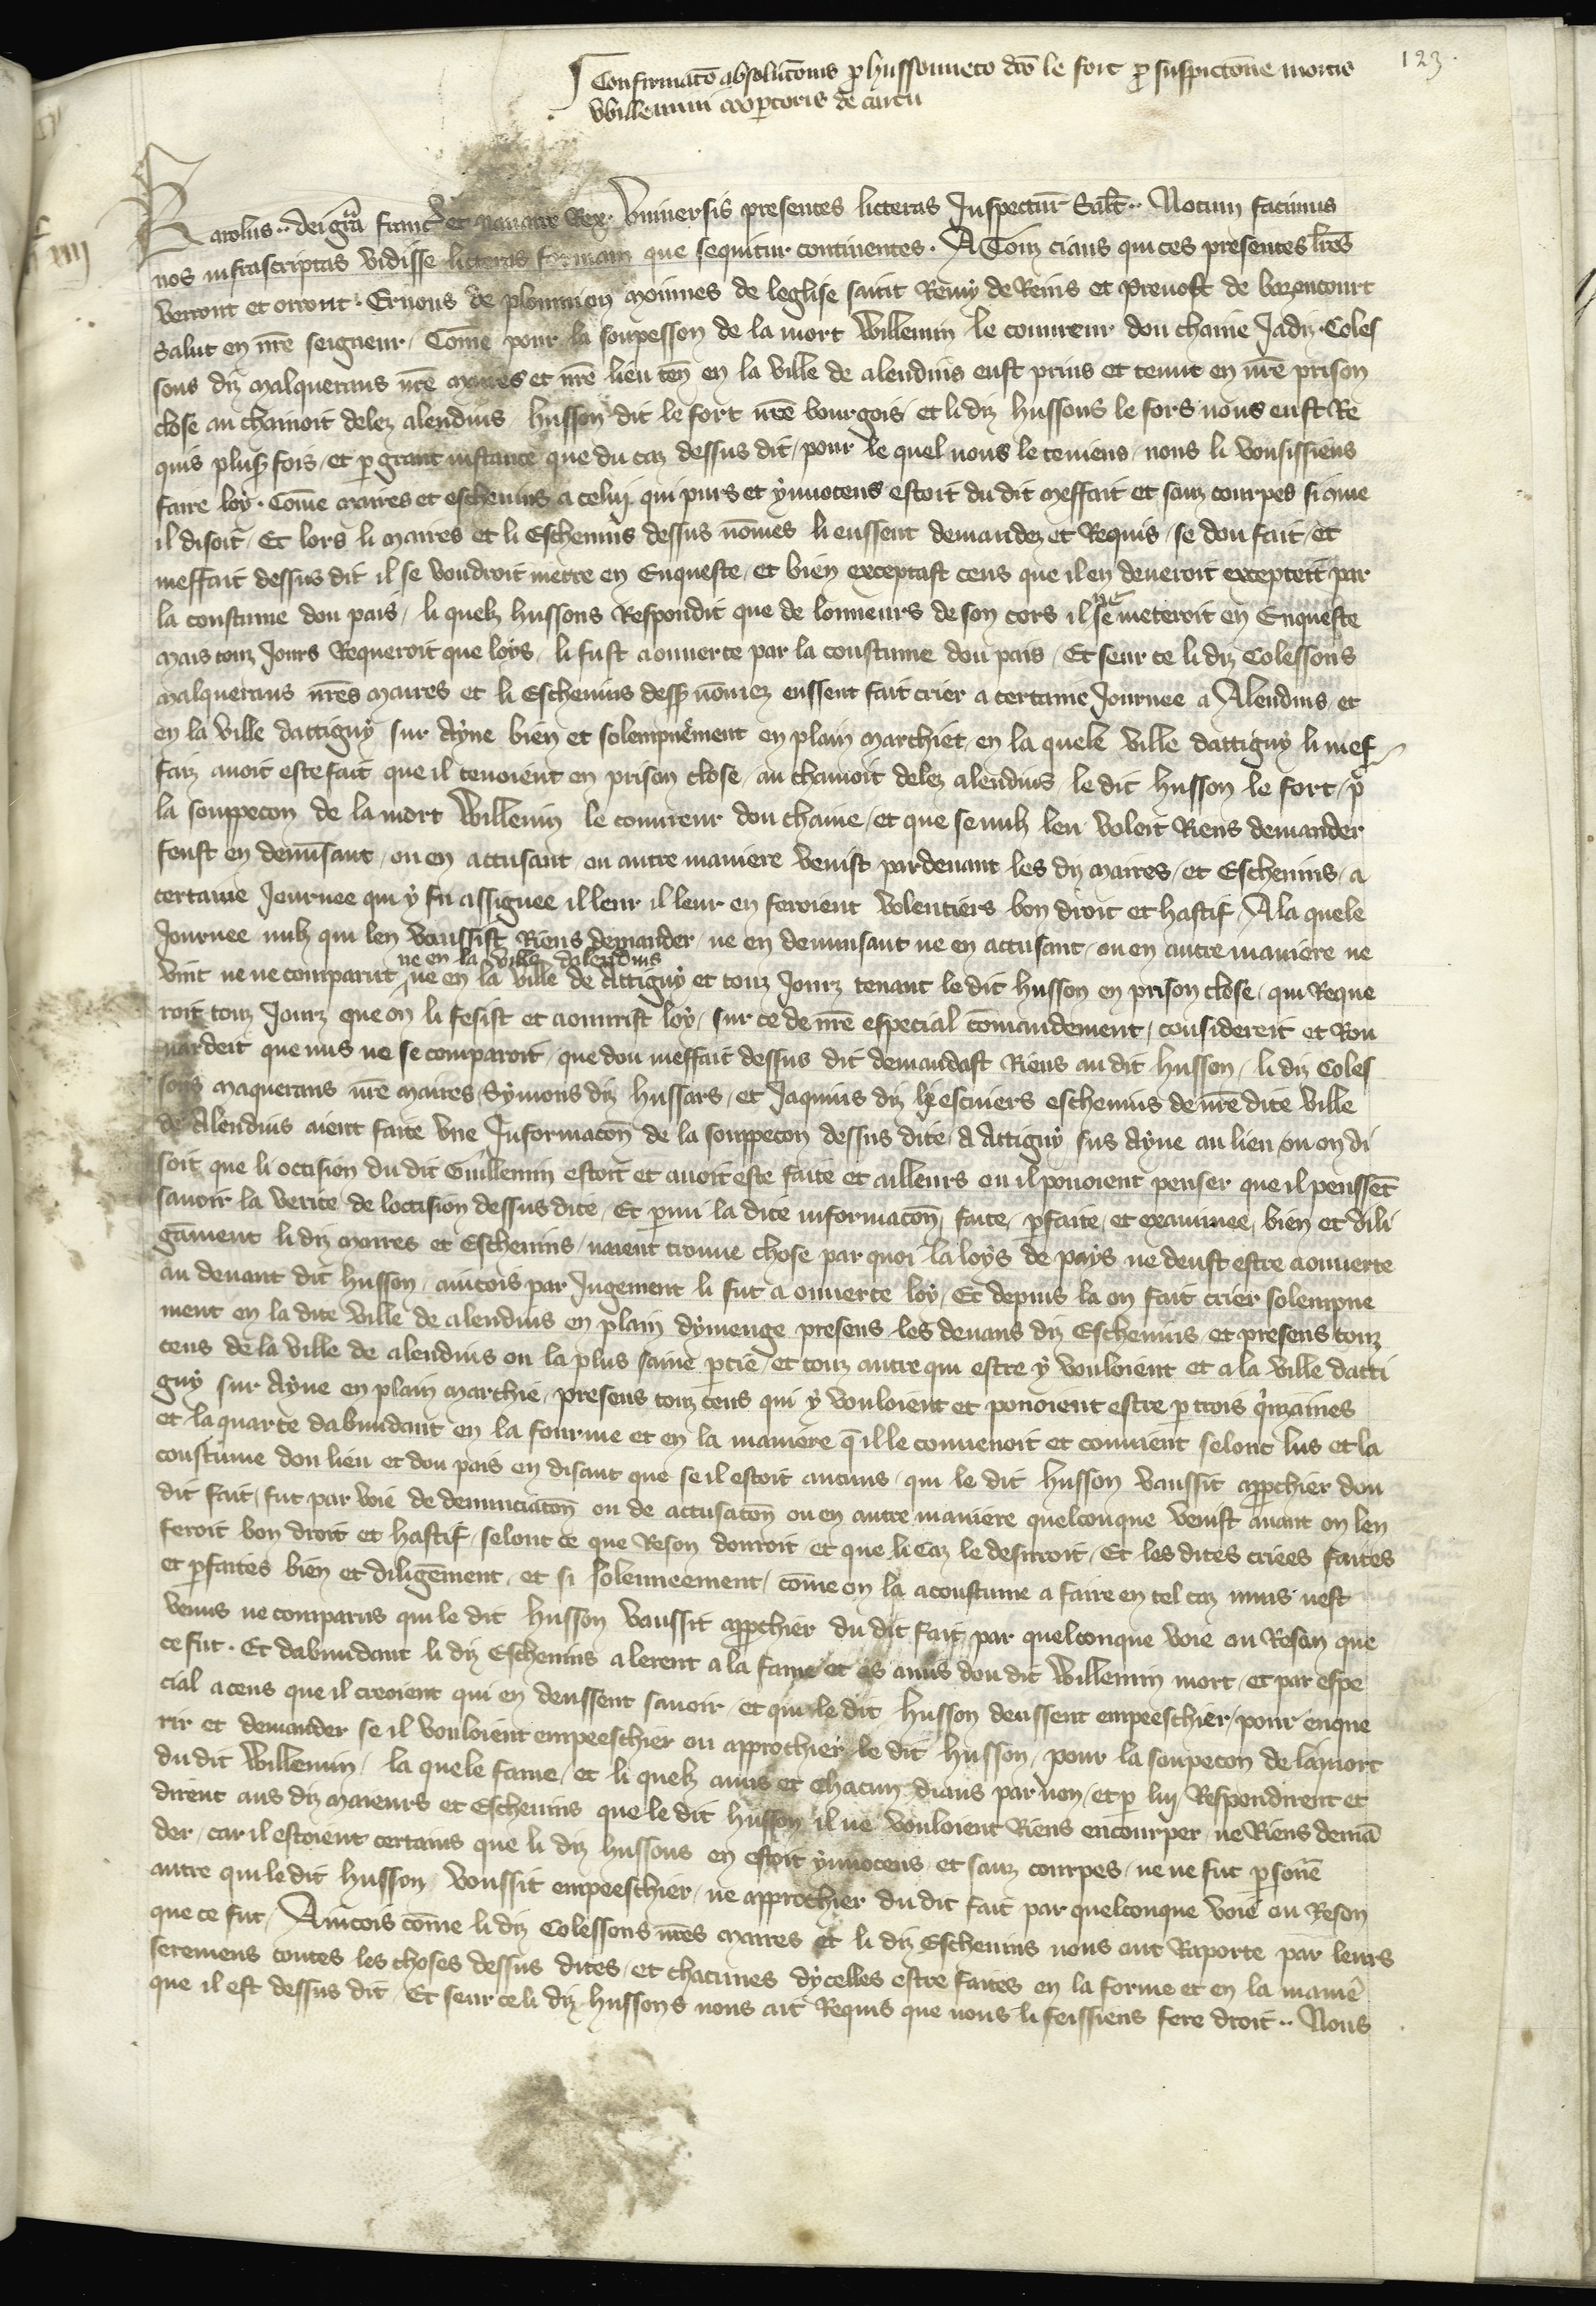 123.
Confirmatō absolutōnis p hussonneto dc̄o le fort p suspictōne mortis
Willemini coopertoris de cacu
Karolus .. dei grā franc̄ et nauarre Rex. Vniuersis presentes litteras Inspectur̄ Sal̄t .. Notum facimus
nos infrascriptas vidisse litteras formam que sequitur continentes. A Touz ciaus qui ces presentes lr̄es
verront et orront. Ernous de plommion moinnes de leglise saint Remy de Reins et Preuost de bazencourt
salut en nr̄e seigneur. Com̄e pour la soupesson de la mort Willemin le couureur dou chaine Jadiz. Coles
sons diz malquerans nr̄e maires et nr̄e lieu ten̄ en la ville de alendins eust prins et tenut en nr̄e prison
close au chainoit delez alendins husson dit le fort nr̄e bourgois et li diz hussons le fors nous eust Re
quis plus̄ fois et p grant instance que du caz dessus dit pour le quel nous le teniens nous li vousissiens
faire loy. Com̄e maires et escheuins a celui qui purs et ynnocens estoit du dit meffait et sanz courpes si cōme
il disoit. Et lors li maires et li Escheuins dessus nōmes li eussent demandez et Requis se dou fait et
meffait dessus dit il se voudroit mettre en Enqueste et bien exceptast ceus que il en deueroit excepteit par
la coustume dou pais. li quelz hussons Respondit que de lonneurs de son cors il ne se meteroit en Enqueste
mais touz Jours Requeroit que loys li fust aouuerte par la coustume dou pais. Et seur ce li diz Colessons
malquerans nr̄es maires et li Escheuins dess̄ nōmez eussent fait crier a certaine Journee a Alendins et
en la ville dattigny sur Ayne bien et solempnēment en plain marchiet en la quele ville dattigny li mef
faiz auoit este fait que il tenoient en prison close au chainoit delez alendins le dit husson le fort p̄
la souppecon de la mort Willemin le couureur dou chaine et que se nulz len voleit Riens demander
feust en denūsant ou en accusant ou autre maniere venist pardeuant les diz maires et Escheuins a
certaine Journee qui y fu assignee il leur il leur en feroient volentiers bon droit et hastif. A la quele
Journee nulz qui len vaussist Riens demander ne en denunsant ne en accusant ou en autre maniere ne
vint ne ne comparut ne en la ville dalendins ne en la ville de Attigny et touz Jourz tenant le dit husson en prison close qui Reque
roit touz Jourz que on li fesist et aouurist loy. sur ce de nr̄e especial cōmandement considereit et Rou
uardeit que nus ne se comparoit que dou meffait dessus dit demandast Riens au dit husson. li diz Coles
sons maquerans nr̄e maires Symons diz hussars et Jaquins diz li escuiers escheuins de nr̄e dite ville
de Alendins aient faite vne Informacōn de la souppecon dessus dite a Attigny sus Ayne au lieu ou on di
soit que li occision du dit Guillemin estoit et auoit este faite et ailleurs ou il pouoient penser que il penssēt
sauoir la verite de loccision dessus dite. Et p̄mi la dite informacōn faite pfaite et examinee bien et dili
gāment li diz maires et Escheuins naient trouue chose par quoi la loys de pays ne deust estre aouuerte
au deuant dit husson aincois par Jugement li fut aouuerte loy. Et depuis la on fait crier solempne
ment en la dite ville de alendins en plain dymenge presens les deuans diz Escheuins et presens touz
ceus de la ville de alendins ou la plus saine ptie et touz autre qui estre y vouloient et a la ville datti
gny sur Ayne en plain marchie presens touz ceus qui y vouloient et pouoient estre p trois qⁱnzaines
et la quarte dabundant en la fourme et en la maniere q̄ il le conuenoit et conuient selonc lus et la
coustume dou lieu et dou pais en disant que se il estoit aucuns qui le dit husson vaussit approchier dou
dit fait fut par voie de denunciacōn ou de accusatōn ou en autre maniere quelconque venist auant on len
feroit bon droit et hastif selont ce que Reson donroit et que li caz le desirroit. Et les dites criees faites
et pfaites bien et diligēment et si solenneement com̄e on la acoustume a faire en tel caz nuns nest
venus ne comparus qui le dit husson vaussit approchier du dit fait par quelconque voie ou Reson que
ce fut. Et dabundant li diz Escheuins alerent a la fame et as amis dou dit Willemin mort et par espe
cial a ceus que il creoient qui en deussent sauoir et qui le dit husson deussent empeeschier pour enque
rir et demander se il vouloient empeeschier ou approchier le dit husson pour la soupecon de la mort
du dit Willemin. la quele fame et li quelz amis et chacun diaus par non et p lui Respondirent et
dirent aus diz maieurs et Escheuins que le dit husson il ne vouloient Riens encourper ne Riens demā
der car il estoient certains que li diz hussons en estoit ynnocens et sanz courpes ne ne fut psonē
autre qui le dit husson voussit empeeschier ne approchier du dit fait par quelconque voie ou Reson
que ce fut. Aincois com̄e li diz Colessons nr̄es maires et li diz Escheuins nous ont Raporte par leurs
seremens toutes les choses dessus dites et chacunes dycelles estre faites en la forme et en la manīe
que il est dessus dit. Et seur ce li diz hussons nous ait Requis que nous li feissiens fere droit .. Nous